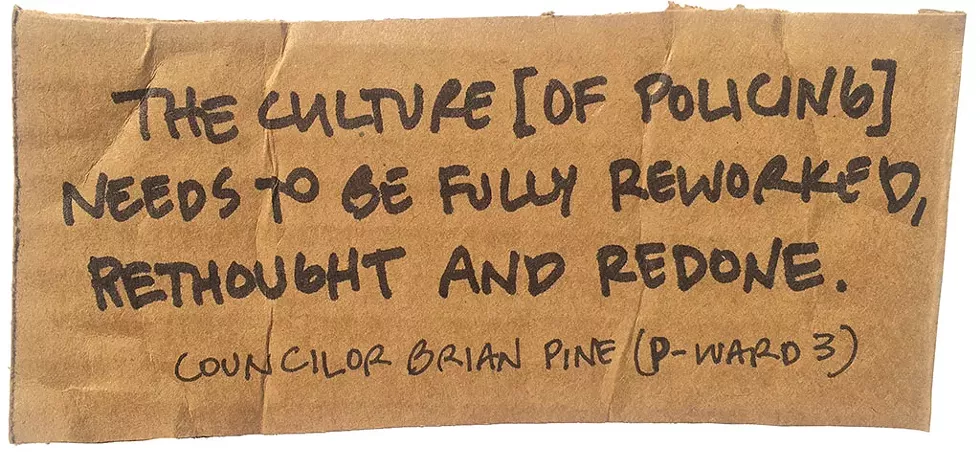 THE CULTURE [OF POLICING]
NEEDS TO BE FULLY REWORKED,
RETHOUGHT AND REDONE.
COUNCILOR BRIAN PINE (P-WARD 3)